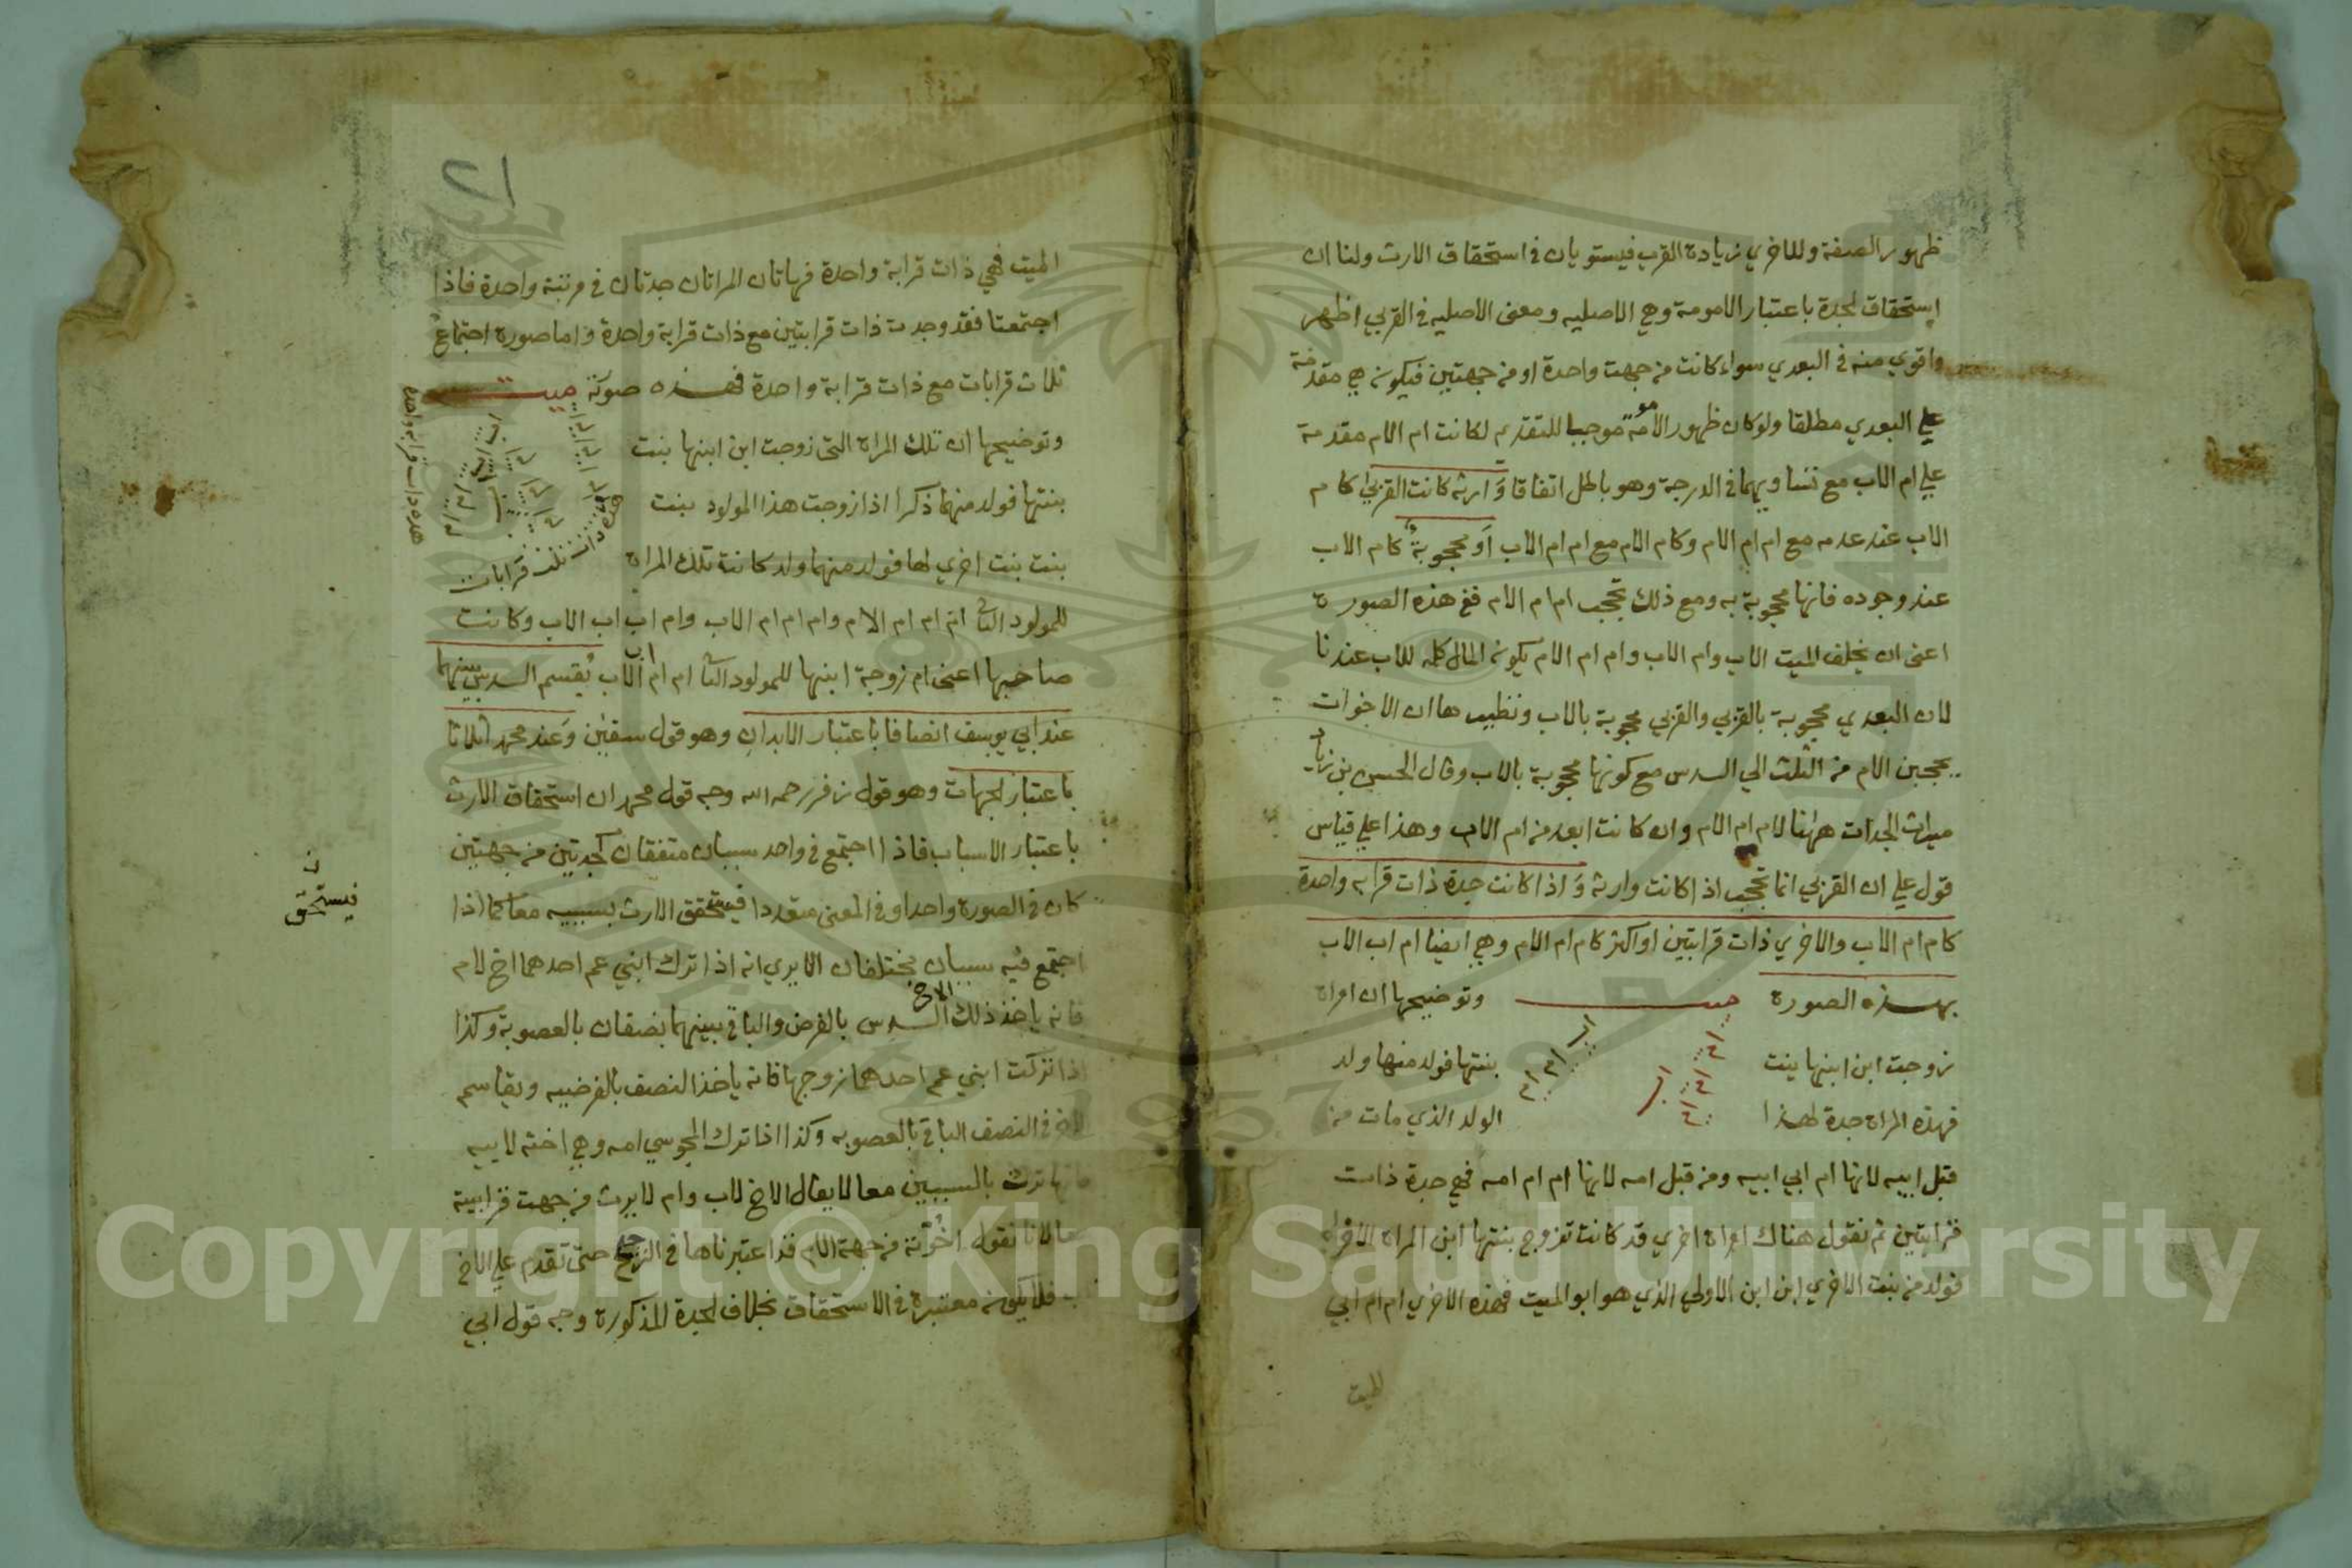 ظهور الصفة وللاخري زيادة القرب فيستويان في استحقاق الارث ولنا ان
استحقاق الجدة باعتبار الامومة وهي الاصليه ومعنى الاصليه في القربي اظهر
واقوي منه في البعدي سواء كانت من جهت واحدة او من جهتين فيكون هي مقدمة
علي البعدي مطلقا ولو كان ظهور الامومة موجبا للتقديم لكانت ام الام مقدمة
علي ام الاب مع تساويهما في الدرجة وهو باطل اتفاقا وارثه كانت القربي كام
الاب عند عدمه مع ام ام الام وكام الام مع ام ام الاب او محجوبة كام الاب
عند وجوده فانها محجوبة به ومع ذلك تحجب ام ام الام ففي هذه الصورة
اعنى ان يخلف الميت الاب وام الاب وام ام الام يكون المال كله للاب عندنا
لان البعدي محجوبة بالقربي والقربي محجوبة بالاب ونظيرها ان الاخوات
يحجبن الام من الثلث الي السدس مع كونها محجوبة بالاب وقال الحسن بن زياد
ميراث الجدات ههنا لام ام الام وان كانت ابعد من ام الاب وهذا علي قياس
قول علي ان القربي انما تحجب اذا كانت وارثة واذا كانت جدة ذات قرابه واحدة
كام ام الاب والاخري ذات قرابتين او اكثر كام ام الام وهي ايضا ام اب الاب
بهذه الصورة ميت وتوضيحها ان امراة
زوجت ابن ابنها بنت بنتها فولد منهما ولد
فهذه المراة جدة لهذا الولد الذي مات من
قبل ابيه لانها ام ابي ابيه ومن قبل امه لانها ام ام امه فهي جدة ذات
قرابتين ثم نقول هناك امراة اخري قد كانت تزوج بنتها ابن المراة الاولى
فولد من بنت الاخري ابن ابن الاولي الذي هو ابو الميت فهذه الاخري ام ام ابي
الميت
٢١
الميت فهي ذات قرابة واحدة فهاتان المراتان جدتان في مرتبة واحدة فاذا
اجتمعتا فقد وجدت ذات قرابتين مع ذات قرابة واحدة واما صورة اجتماع
ثلاث قرابات مع ذات قرابة واحدة فهذه صورته ميت
وتوضيحها ان تلك المراة التى زوجت ابن ابنها بنت
بنتها فولد منهما ذكرا اذا زوجت هذا المولود بنت
بنت بنت اخري لها فولد منهما ولد كانت تلك المراة
هذه ذات ثلث قرابات
هذه ذات قرابه واحدة
للمولود الثاني ام ام ام الام وام ام ام الاب وام اب اب الاب وكانت
صاحبها اعنى ام زوجة ابنها للمولود الثاني ام ام اب الاب يقسم السدس بينهما
عند ابي يوسف انصافا باعتبار الابدان وهو قول سفين وعند محمد اثلاثا
باعتبار الجهات وهو قول زفر رحمه الله وجه قول محمد ان استحقاق الارث
باعتبار الاسباب فاذا اجتمع في واحد سببان متفقان كجدتين من جهتين
كان في الصورة واحدا و في المعنى متعددا فيستحق الارث بسببيه معا كما اذا
فيستحق
اجتمع فيه سببان مختلفان الا يري انه اذا ترك ابني عم احدهما اخ لام
فانه ياخذ ذلك الاخ السدس بالفرض والباقي بينهما نصفان بالعصوبة وكذا
اذا تركت ابني عم احدهما زوجها فانه ياخذ النصف بالفرضيه ويقاسم
الاخر في النصف الباقي بالعصوبه وكذا اذا ترك المجوسي امه وهي اخته لابيه
فانها ترث بالسببين معا لا يقال الاخ لاب وام لا يرث من جهت قرابيه
معا لانا نقول اخوته من جهة الام قد اعتبرناها في الترجيح حتى تقدم علي الاخ
فلا يكون معتبرة في الاستحقاق بخلاف الجدة المذكورة وجه قول ابي
Copyright © King Saud University
1957